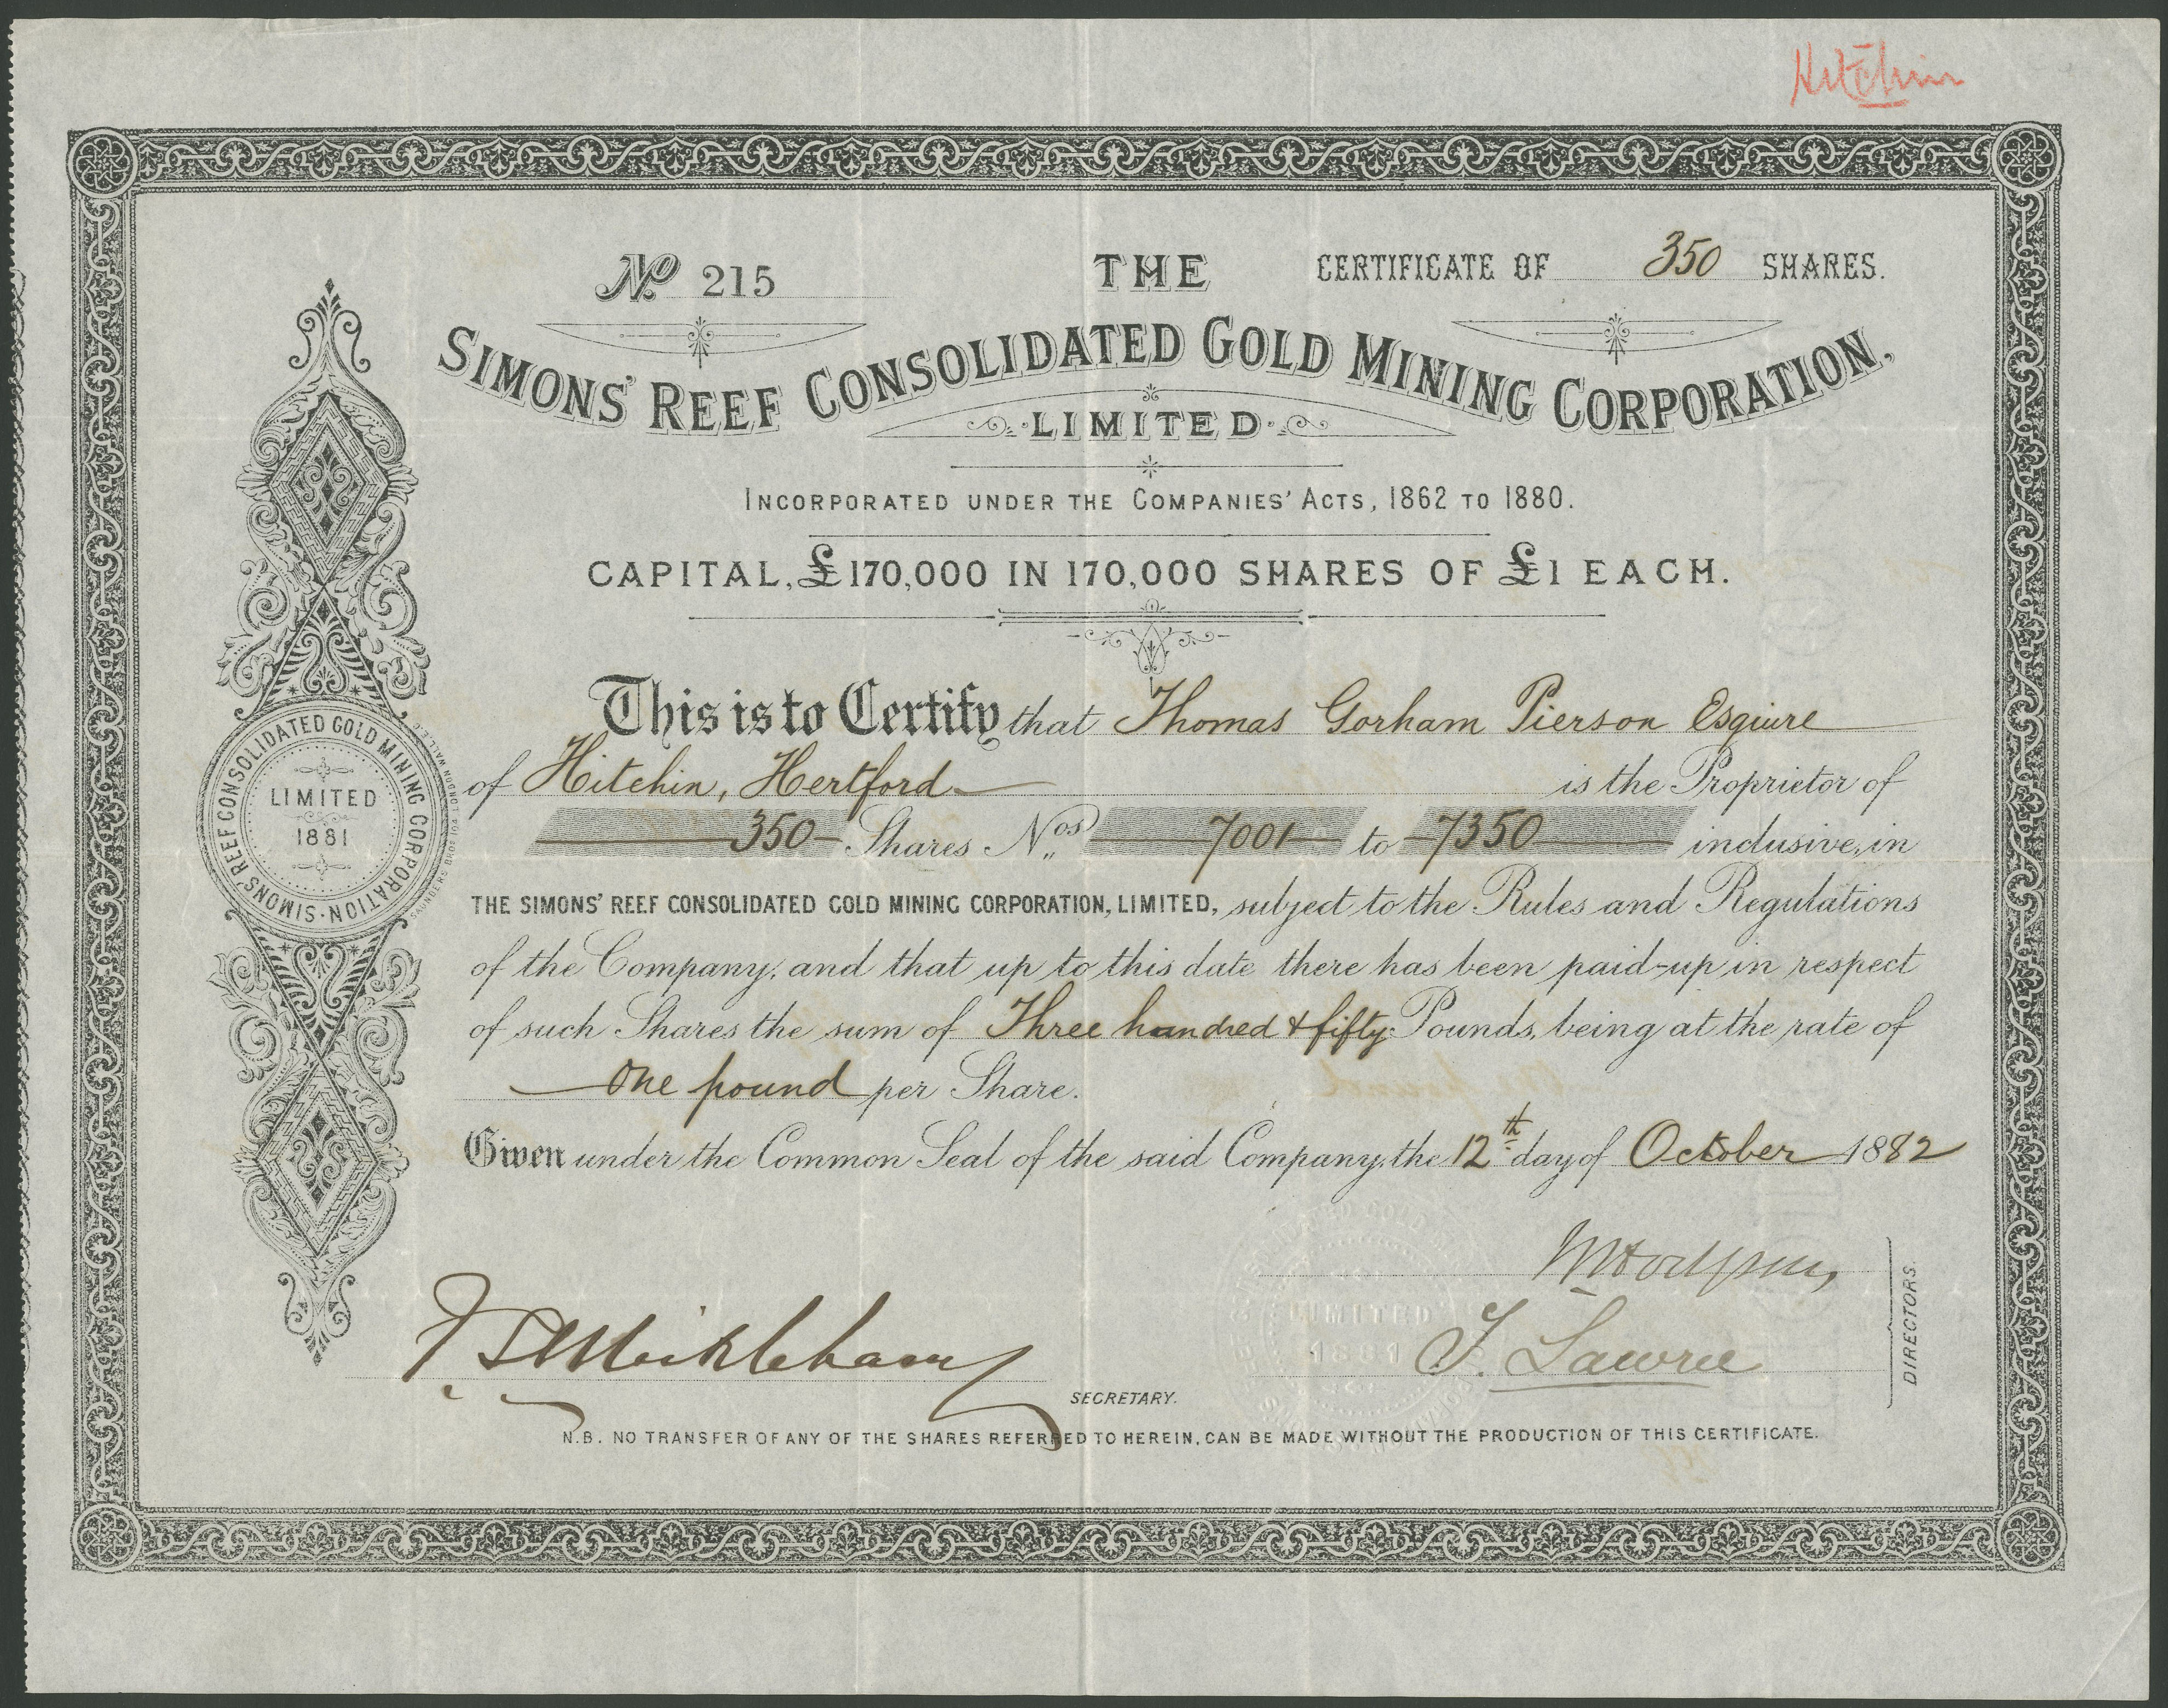 Hitchin
No 215
THE
CERTIFICATE OF 350 SHARES.
SIMONS' REEF CONSOLIDATED GOLD MINING CORPORATION,
LIMITED
INCORPORATED UNDER THE COMPANIES' ACTS, 1862 TO 1880.
CAPITAL, £170,000 IN 170,000 SHARES OF £1 EACH.
This is to Certify that Thomas Gorham Pierson Esquire
of Hitchin, Hertford is the Proprietor of
350 Shares Nos 7001 to 7350 inclusive, in
THE SIMONS' REEF CONSOLIDATED GOLD MINING CORPORATION, LIMITED, subject to the Rules and Regulations
of the Company, and that up to this date there has been paid-up in respect
of such Shares the sum of Three hundred & fifty Pounds, being at the rate of
One pound per Share.
Given under the Common Seal of the said Company, the 12th day of October 1882
SIMONS' REEF CONSOLIDATED GOLD MINING CORPORATION
LIMITED
1881
LONDON WALL E.C.
LIMITED
1881
T. Lawrie
DIRECTORS.
SECRETARY.
N.B. NO TRANSFER OF ANY OF THE SHARES REFERRED TO HEREIN, CAN BE MADE WITHOUT THE PRODUCTION OF THIS CERTIFICATE.